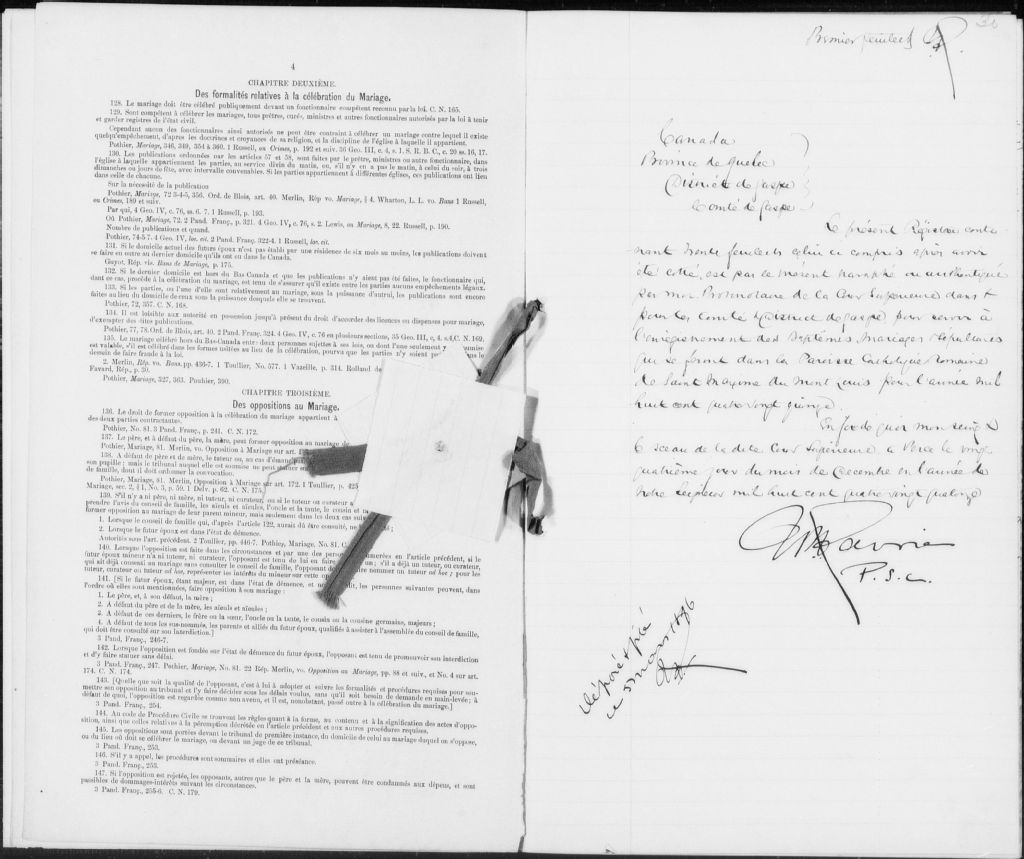 4
CHAPITRE DEUXIÈME.
Des formalités relatives à la célébration du Mariage.
128. Le mariage doit être célébré publiquement devant un fonctionnaire compétent reconnu par la loi. C. N. 165.
129. Sont compétent à célébrer les mariages, tous prêtres, curés, ministres et autres fonctionnaires autorisés par la loi à tenir
et garder registres de l'état civil.
Cependant aucun des fonctionnaires ainsi autorisés ne peut être contraint à célébrer un mariage contre lequel il existe
quelqu'empêchement, d'après les doctrines et croyances de sa religion, et la discipline de l'église à laquelle il appartient.
Pothier, Mariage, 346, 349, 354 & 360. 1 Russell, on Crimes, p. 192 et suiv. 36 Geo. III, c. 4, s. 1. S. R. B. C., c. 20 ss. 16, 17.
130. Les publications ordonnées par les articles 57 et 58, sont faites par le prêtre, ministre ou autre fonctionnaire, dans
l'église à laquelle appartiennent les parties, au service divin du matin, ou, s'il n'y en a pas le matin, à celui du soir, à trois
dimanches ou jours de fête, avec intervalle convenables. Si les parties appartiennent à différentes églises, ces publications ont lieu
dans celle de chacune.
Sur la nécessité de la publication
Pothier, Mariage, 72 3-4-5, 356. Ord. de Blois, art. 40. Merlin, Rép vo. Mariage, § 4. Wharton, L. L. vo. Bans 1 Russell,
on Crimes, 189 et suiv.
Par qui, 4 Geo. IV, c. 76, ss. 6. 7. 1 Russell, p. 193.
Où Pothier, Mariage, 72. 2 Pand. Franç, p. 321. 4 Geo. IV, c. 76, s. 2. Lewis, on Mariage, 8, 22. Russell, p. 190.
Nombre de publications et quand.
Pothier, 74-5-7. 4 Geo. IV, loc. cit. 2 Pand. Franç. 322-4. 1 Russell, loc. cit.
131. Si le domicile actuel des futurs époux n'est pas établi par une résidence de six mois au moins, les publications doivent
se faire en outre au dernier domicile qu'ils ont eu dans le Canada.
Guyot, Rép. vis. Bans de Mariage, p. 175.
132. Si le dernier domicile est hors du Bas-Canada et que les publications n'y aient pas été faites, le fonctionnaire qui,
dant ce cas, procède à la célébration du mariage, est tenu de s'assurer qu'il existe entre les parties aucuns empêchements légaux.
133. Si les parties, ou l'une d'elle sont relativement au mariage, sous la puissance d'autrui, les publications sont encore
faites au lieu du domicile de ceux sous la puissance desquels elle se trouvent.
Pothier, 72, 357. C. N. 168.
134. Il est loisible aux autorité en possession jusqu'à présent du droit d'accorder des licences ou dispenses pour mariage,
d'exempter des dites publications.
Pothier, 77, 78. Ord. de Blois, art. 40. 2 Pand Franç. 324. 4 Geo. IV, c. 76 en plusieurs sections, 35 Geo. III, c. 4. s.4, C. N. 169.
135. Le mariage célébré hors du Bas-Canada entre deux personnes sujettes à ses lois, ou dont l'une seulement y
est valable, s'il est célébré dans les formes usitées au lieu de la célébration, pourvu que les parties n'y soient
dessein de faire fraude à la loi.
2. Merlin, Rép. vo. Bans, pp. 436-7. 1 Toullier, No. 577. 1 Vazeille. p. 314. Rolland de
Favard, Rép., p. 30.
Pothier, Mariage, 327, 363. Pouhier, 390.
CHAPITRE TROISIÈME.
Des oppositions au Mariage.
136. Le droit de former opposition à la célébration du mariage appartient à
des deux parties contractantes.
Pothier, No. 81. 3 Pand. Franç., p. 241. C. N. 172.
137. Le père, et à défaut du père, la mère, peut former opposition au mariage de
Pothier, Mariage, 81. Merlin, vo. Opposition à Mariage sur art.
138. A défaut de père et de mère, le tuteur ou, au cas d'émancipation
son pupille; mais le tribunal auquel elle est soumise ne peut statuer
de famille, dont il doit ordonner la convocation.
Pothier, Mariage, 81. Merlin, Opposition à Mariage sur art. 172. 1 Toullier, p. 425
Mariage, sec. 2, § 1, No. 3, p. 59. 1 Delv. p. 62. C N. 175.
139. S'il n'y a ni père, ni mère, ni tuteur, ni curateur, ou si le tuteur ou curateur a
prendre l'avis du conseil de famille, les aïeuls et aïeules, l'oncle et la tante, le cousin et
former opposition au mariage de leur parent mineur, mais seulement dans les deux cas
1. Lorsque le conseil de famille qui, d'après l'article 122, aurait dû être consulté, ne
2. Lorsque le futur époux est dans l'état de démence.
Autorités sous l'art. précédent. 2 Toullier, pp. 446-7. Pothier, Mariage. No. 81. C.
140. Lorsque l'opposition est faite dans les circonstances et par une des énumérées en l'article précédent, si le
futur époux mineur n'a ni tuteur, ni curateur, l'opposant est tenu de lui en faire un; s'il a déjà un tuteur, ou curateur,
qui ait déjà consenti au mariage sans consulter le conseil de famille, l'opposant nommer un tuteur ad hoc; pour les
tuteur, curateur ou tuteur ad hoc, représenter les intérêts du mineur sur cette
141. [Si le futur époux, étant majeur, est dans l'état de démence, et les personnes suivantes peuvent, dans
l'ordre où elles sont mentionnées, faire opposition à son mariage:
1. Le père, et, à son défaut, la mère;
2. A défaut du père et de la mère, les aïeuls et aïeules;
3. A défaut de ces derniers, le frère ou la sœur, l'oncle ou la tante, le cousin ou la cousine germaine, majeurs;
4. A défaut de tous les sus-nommés, les parents et alliés du futur époux, qualifiés à assister à l'assemblée du conseil de famille,
qui doit être consulté sur son interdiction.]
3 Pand. Franç., 246-7.
142. Lorsque l'opposition est fondée sur l'état de démence du futur époux, l'opposant est tenu de promouvoir son interdiction
et d'y faire statuer sans délai.
3 Pand. Franç., 247. Pothier, Mariage, No. 81. 22 Rép. Merlin, vo. Opposition au Mariage, pp. 88 et suiv., et No. 4 sur art.
174. C. N. 174.
143. [Quelle que soit la qualité de l'opposant, c'est à lui à adopter et suivre les formalités et procédures requises pour sou-
mettre son opposition au tribunal et l'y faire décider sous les délais voulus, sans qu'il soit besoin de demande en main-levée; à
défaut de quoi, l'opposition est regardée comme non avenue, et il est, nonobstant, passé outre à la célébration du mariage.]
3 Pand. Franç., 254.
144. Au code de Procédure Civile se trouvent les règles quant à la forme, au contenu et à la signification des actes d'oppo-
sition, ainsi que celles relatives à la péremption décrétée en l'article précédent et aux autres procédures requises.
145. Les opposition sont portées devant le tribunal de première instance, du domicile de celui au mariage duquel on s'oppose,
ou du lieu où doit se célébrer le mariage, ou devant un juge de ce tribunal.
3 Pand. Franç., 253.
146. S'il y a appel, les procédures sont sommaires et elles ont préséance.
3 Pand. Franç., 253.
147. Si l'opposition est rejetée, les opposants, autres que le père et la mère, peuvent être condamnés aux dépens, et sont
passibles de dommages-intérêts suivant les circonstances.
3 Pand. Franç., 255-6. C. N. 179.
Premier feuillet
Canada
Province de Québec
District de Gaspé
Comté de Gaspé
Le présent Régistre conte-
nant trente feuillets celui ci compris après avoir
été cotté, est par le présent paraphé ou authentiqué
par moi Protonotaire de la Cour Supérieure dans &
pour les Comté & District de Gaspé pour servir à
l'enregistrement des Baptêmes, Mariages & Sépultures
qui se feront dans la Paroisse Catholique Romaine
de Saint Maxime du Mont Louis pour l'année mil
huit cent quatre vingt quinze.
En foi de quoi mon seing &
le sceau de la dite Cour Supérieure à Percé le vingt
quatrième jour du mois de Décembre en l'année de
notre Seigneur mil huit cent quatre vingt quatorze
P. S. C.
Déposé & filé
ce mars 1896